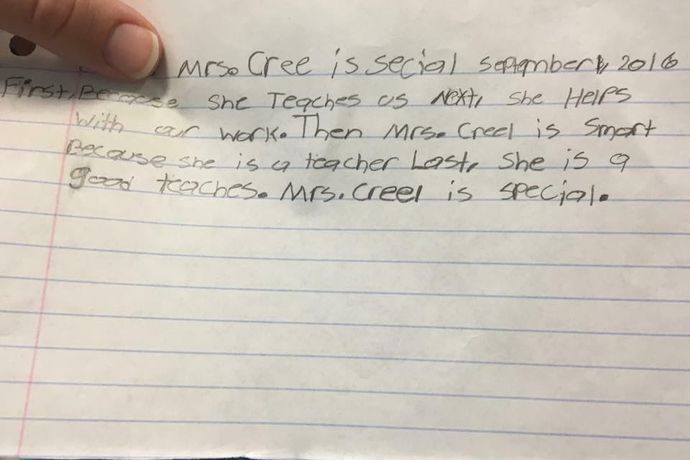 Mrs. Cree is secial September 1, 2016
First, Because She Teaches us Next, she Helps
With our work. Then Mrs. Creel is Smart
Because she is a teacher Last, She is a
good teaches. Mrs. Creel is special.